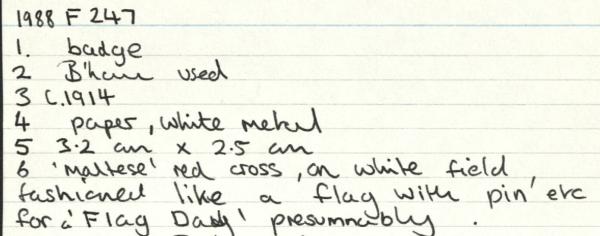 1988 F 247
1. badge
2 B'ham used
3 C.1914
4 paper, white metal
5 3.2 cm x 2.5 cm
6 'maltese' red cross, on white field,
fashioned like a flag with pin' etc
for a 'Flag Day' presumnably.